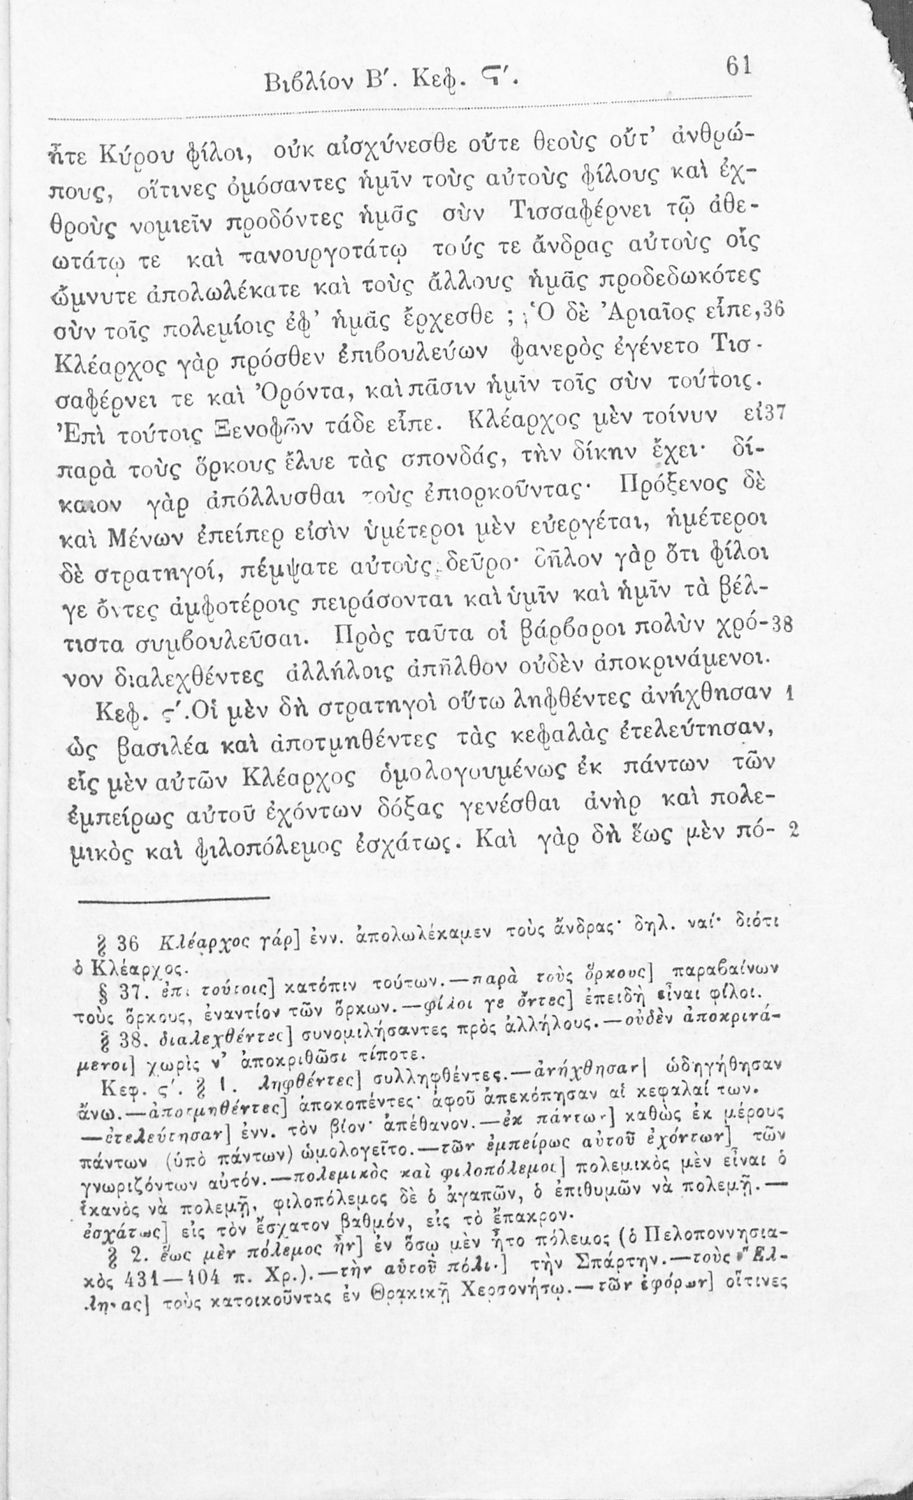 Βιβλίον Β'. Κεφ. Ϛ'.
61
ἦτε Κύρου φίλοι, οὐκ αἰσχύνεσθε οὔτε θεοὺς οὔτ' ἀνθρώ-
πους, οἵτινες ὀμόσαντες ἡμῖν τοὺς αὐτοὺς φίλους καὶ ἐχ-
θροὺς νομιεῖν προδόντες ἡμᾶς σὺν Τισσαφέρνει τῷ ἀθε-
ωτάτῳ τε καὶ πανουργοτάτῳ τούς τε ἄνδρας αὐτοὺς οἷς
ὤμνυτε ἀπολωλέκατε καὶ τοὺς ἄλλους ἡμᾶς προδεδωκότες
σὺν τοῖς πολεμίοις ἐφ' ἡμᾶς ἔρχεσθε ; Ὁ δὲ Ἀριαῖος εἶπε, 36
Κλέαρχος γὰρ πρόσθεν ἐπιβουλεύων φανερὸς ἐγένετο Τισ-
σαφέρνει τε καὶ Ὀρόντα, καὶ πᾶσιν ἡμῖν τοῖς σὺν τούτοις.
Ἐπὶ τούτοις Ξενοφῶν τάδε εἶπε. Κλέαρχος μὲν τοίνυν εἰ 37
παρὰ τοὺς ὅρκους ἔλυε τὰς σπονδάς, τὴν δίκην ἔχει· δί-
καιον γὰρ ἀπόλλυσθαι τοὺς ἐπιορκοῦντας· Πρόξενος δὲ
καὶ Μένων ἐπείπερ εἰσὶν ὑμέτεροι μὲν εὐεργέται, ἡμέτεροι
δὲ στρατηγοί, πέμψατε αὐτοὺς δεῦρο· δῆλον γὰρ ὅτι φίλοι
γε ὄντες ἀμφοτέροις πειράσονται καὶ ὑμῖν καὶ ἡμῖν τὰ βέλ-
τιστα συμβουλεῦσαι. Πρὸς ταῦτα οἱ βάρβαροι πολὺν χρό- 38
νον διαλεχθέντες ἀλλήλοις ἀπῆλθον οὐδὲν ἀποκρινάμενοι.
Κεφ. ϛ'. Οἱ μὲν δὴ στρατηγοὶ οὕτω ληφθέντες ἀνήχθησαν 1
ὡς βασιλέα καὶ ἀποτμηθέντες τὰς κεφαλὰς ἐτελεύτησαν,
εἷς μὲν αὐτῶν Κλέαρχος ὁμολογουμένως ἐκ πάντων τῶν
ἐμπείρως αὐτοῦ ἐχόντων δόξας γενέσθαι ἀνὴρ καὶ πολε-
μικὸς καὶ φιλοπόλεμος ἐσχάτως. Καὶ γὰρ δὴ ἕως μὲν πό- 2
§ 36 Κλέαρχος γάρ] ἐνν. ἀπολωλέκαμεν τοὺς ἄνδρας· δηλ. ναί· διότι
ὁ Κλέαρχος.
§ 37. ἐπὶ τούτοις] κατόπιν τούτων.—παρὰ τοὺς ὅρκους] παραβαίνων
τοὺς ὅρκους, ἐναντίον τῶν ὅρκων.—φίλοι γε ὄντες] ἐπειδὴ εἶναι φίλοι.
§ 38. διαλεχθέντες] συνομιλήσαντες πρὸς ἀλλήλους.—οὐδὲν ἀποκρινά-
μενοι] χωρὶς ν' ἀποκριθῶσι τίποτε.
Κεφ. ϛ'. § 1. ληφθέντες] συλληφθέντες.—ἀνήχθησαν] ὡδηγήθησαν
ἄνω.—ἀποτμηθέντες] ἀποκοπέντες· ἀφοῦ ἀπεκόπησαν αἱ κεφαλαί των.
—ἐτελεύτησαν] ἐνν. τὸν βίον· ἀπέθανον.—ἐκ πάντων] καθὼς ἐκ μέρους
πάντων (ὑπὸ πάντων) ὡμολογεῖτο.—τῶν ἐμπείρως αὐτοῦ ἐχόντων] τῶν
γνωριζόντων αὐτόν.—πολεμικὸς καὶ φιλοπόλεμος] πολεμικὸς μὲν εἶναι ὁ
ἱκανὸς νὰ πολεμῇ, φιλοπόλεμος δὲ ὁ ἀγαπῶν, ὁ ἐπιθυμῶν νὰ πολεμῇ.—
ἐσχάτως] εἰς τὸν ἔσχατον βαθμόν, εἰς τὸ ἔπακρον.
§ 2. ἕως μὲν πόλεμος ἦν] ἐν ὅσῳ μὲν ἦτο πόλεμος (ὁ Πελοποννησια-
κὸς 431—404 π. Χρ.).—τὴν αὑτοῦ πόλιν] τὴν Σπάρτην.—τοὺς Ἕλ-
ληνας] τοὺς κατοικοῦντας ἐν Θρᾳκικῇ Χερσονήτῳ.—τῶν ἐφόρων] οἵτινες